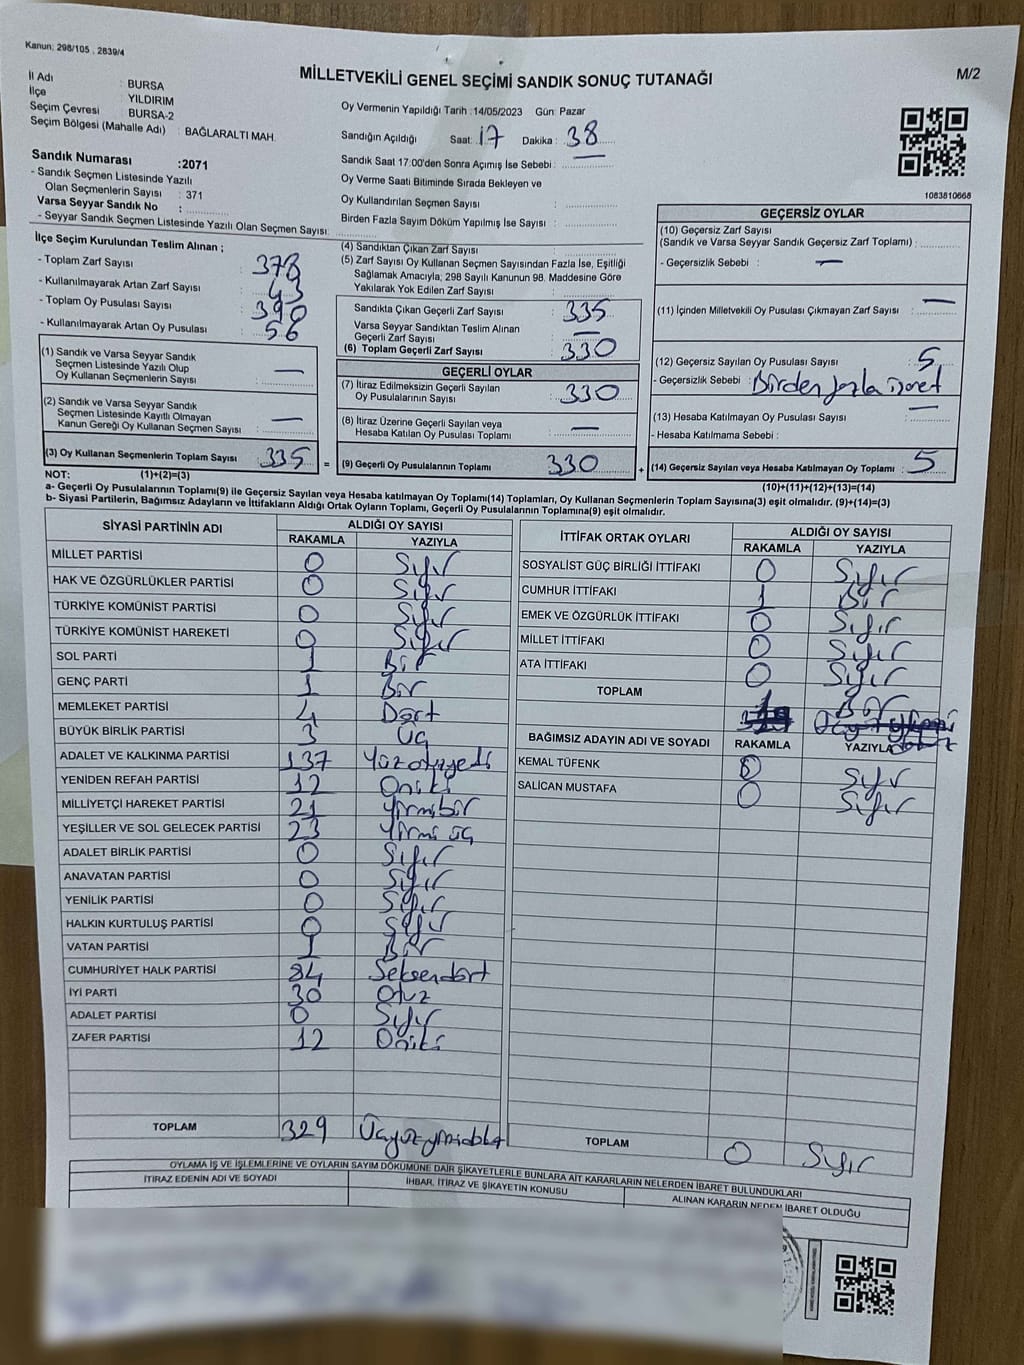 Kanun: 298/105 , 2839/4
MİLLETVEKİLİ GENEL SEÇİMİ SANDIK SONUÇ TUTANAĞI
M/2
İl Adı : BURSA
İlçe : YILDIRIM
Seçim Çevresi : BURSA-2
Seçim Bölgesi (Mahalle Adı) : BAĞLARALTI MAH.
Sandık Numarası :2071
- Sandık Seçmen Listesinde Yazılı
Olan Seçmenlerin Sayısı : 371
Varsa Seyyar Sandık No :
- Seyyar Sandık Seçmen Listesinde Yazılı Olan Seçmen Sayısı:
Oy Vermenin Yapıldığı Tarih :14/05/2023 Gün: Pazar
Sandığın Açıldığı Saat: 17 Dakika: 38
Sandık Saat 17:00'den Sonra Açımış İse Sebebi : —
Oy Verme Saati Bitiminde Sırada Bekleyen ve
Oy Kullandırılan Seçmen Sayısı :
Birden Fazla Sayım Döküm Yapılmış İse Sayısı :
1083810668
İlçe Seçim Kurulundan Teslim Alınan ;
- Toplam Zarf Sayısı : 378
- Kullanılmayarak Artan Zarf Sayısı : 43
- Toplam Oy Pusulası Sayısı : 390
- Kullanılmayarak Artan Oy Pusulası : 56
(1) Sandık ve Varsa Seyyar Sandık
Seçmen Listesinde Yazılı Olup
Oy Kullanan Seçmenlerin Sayısı : —
(2) Sandık ve Varsa Seyyar Sandık
Seçmen Listesinde Kayıtlı Olmayan
Kanun Gereği Oy Kullanan Seçmen Sayısı : —
(3) Oy Kullanan Seçmenlerin Toplam Sayısı : 335 =
(4) Sandıktan Çıkan Zarf Sayısı :
(5) Zarf Sayısı Oy Kullanan Seçmen Sayısından Fazla İse, Eşitliği
Sağlamak Amacıyla, 298 Sayılı Kanunun 98. Maddesine Göre
Yakılarak Yok Edilen Zarf Sayısı :
Sandıkta Çıkan Geçerli Zarf Sayısı : 335
Varsa Seyyar Sandıktan Teslim Alınan
Geçerli Zarf Sayısı : —
(6) Toplam Geçerli Zarf Sayısı : 330
GEÇERLİ OYLAR
(7) İtiraz Edilmeksizin Geçerli Sayılan
Oy Pusulalarının Sayısı : 330
(8) İtiraz Üzerine Geçerli Sayılan veya
Hesaba Katılan Oy Pusulası Toplamı : —
(9) Geçerli Oy Pusulalarının Toplamı 330 +
GEÇERSİZ OYLAR
(10) Geçersiz Zarf Sayısı
(Sandık ve Varsa Seyyar Sandık Geçersiz Zarf Toplamı) :
- Geçersizlik Sebebi : —
(11) İçinden Milletvekili Oy Pusulası Çıkmayan Zarf Sayısı : —
(12) Geçersiz Sayılan Oy Pusulası Sayısı : 5
- Geçersizlik Sebebi : Birden fazla işaret
(13) Hesaba Katılmayan Oy Pusulası Sayısı : —
- Hesaba Katılmama Sebebi :
(14) Geçersiz Sayılan veya Hesaba Katılmayan Oy Toplamı : 5
NOT: (1)+(2)=(3)
(10)+(11)+(12)+(13)=(14)
a- Geçerli Oy Pusulalarının Toplamı(9) ile Geçersiz Sayılan veya Hesaba katılmayan Oy Toplamı(14) Toplamları, Oy Kullanan Seçmenlerin Toplam Sayısına(3) eşit olmalıdır. (9)+(14)=(3)
b- Siyasi Partilerin, Bağımsız Adayların ve İttifakların Aldığı Ortak Oyların Toplamı, Geçerli Oy Pusulalarının Toplamına(9) eşit olmalıdır.
SİYASİ PARTİNİN ADI ALDIĞI OY SAYISI
RAKAMLA YAZIYLA
MİLLET PARTİSİ 0 Sıfır
HAK VE ÖZGÜRLÜKLER PARTİSİ 0 Sıfır
TÜRKİYE KOMÜNİST PARTİSİ 0 Sıfır
TÜRKİYE KOMÜNİST HAREKETİ 0 Sıfır
SOL PARTİ 1 Bir
GENÇ PARTİ 1 Bir
MEMLEKET PARTİSİ 4 Dört
BÜYÜK BİRLİK PARTİSİ 3 Üç
ADALET VE KALKINMA PARTİSİ 137 Yüzotuzyedi
YENİDEN REFAH PARTİSİ 12 Oniki
MİLLİYETÇİ HAREKET PARTİSİ 21 Yirmibir
YEŞİLLER VE SOL GELECEK PARTİSİ 23 Yirmi üç
ADALET BİRLİK PARTİSİ 0 Sıfır
ANAVATAN PARTİSİ 0 Sıfır
YENİLİK PARTİSİ 0 Sıfır
HALKIN KURTULUŞ PARTİSİ 0 Sıfır
VATAN PARTİSİ 1 Bir
CUMHURİYET HALK PARTİSİ 84 Seksendört
İYİ PARTİ 30 Otuz
ADALET PARTİSİ 0 Sıfır
ZAFER PARTİSİ 12 Oniki
TOPLAM 329
İTTİFAK ORTAK OYLARI ALDIĞI OY SAYISI
RAKAMLA YAZIYLA
SOSYALİST GÜÇ BİRLİĞİ İTTİFAKI 0 Sıfır
CUMHUR İTTİFAKI 1 Bir
EMEK VE ÖZGÜRLÜK İTTİFAKI 0 Sıfır
MİLLET İTTİFAKI 0 Sıfır
ATA İTTİFAKI 0 Sıfır
TOPLAM 1 Bir
BAĞIMSIZ ADAYIN ADI VE SOYADI RAKAMLA YAZIYLA
KEMAL TÜFENK 0 Sıfır
SALİCAN MUSTAFA 0 Sıfır
TOPLAM 0 Sıfır
OYLAMA İŞ VE İŞLEMLERİNE VE OYLARIN SAYIM DÖKÜMÜNE DAİR ŞİKAYETLERLE BUNLARA AİT KARARLARIN NELERDEN İBARET BULUNDUKLARI
İTİRAZ EDENİN ADI VE SOYADI İHBAR, İTİRAZ VE ŞİKAYETİN KONUSU ALINAN KARARIN NEDEN İBARET OLDUĞU